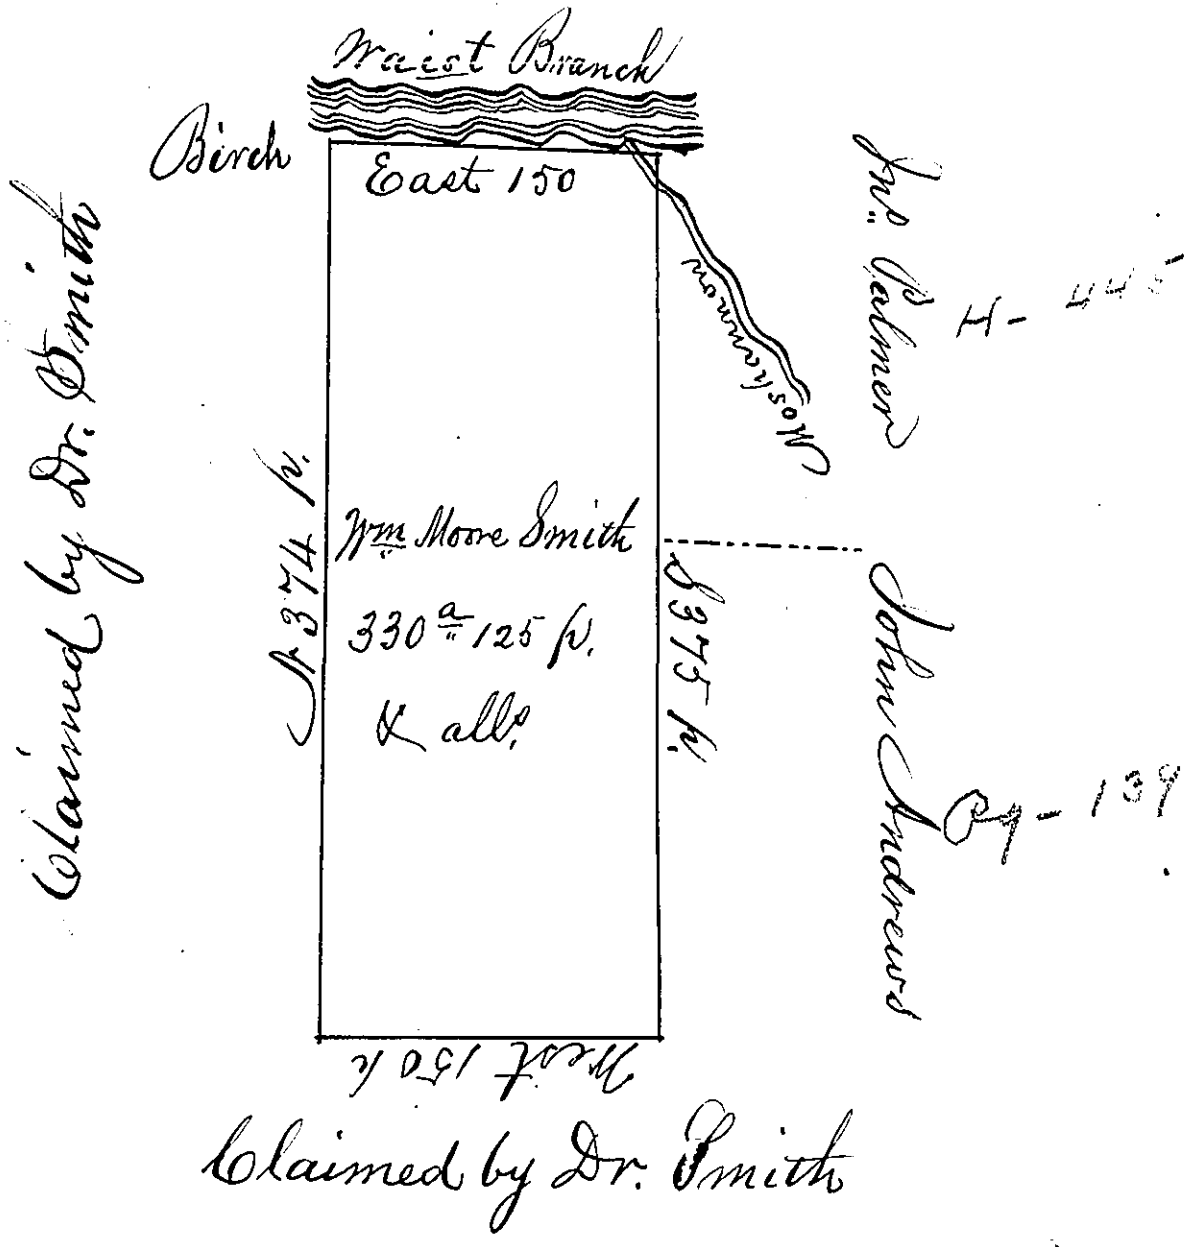 Waist Branch
Birch
East 150
Moshannon
Jno. Palmer
H - 445
Claimed by Dr. Smith
N 374 p.
Wm Moore Smith
330 a 125 p.
& allo.
S 375 p.
John Andrews
West 150 p
Claimed by Dr. Smith